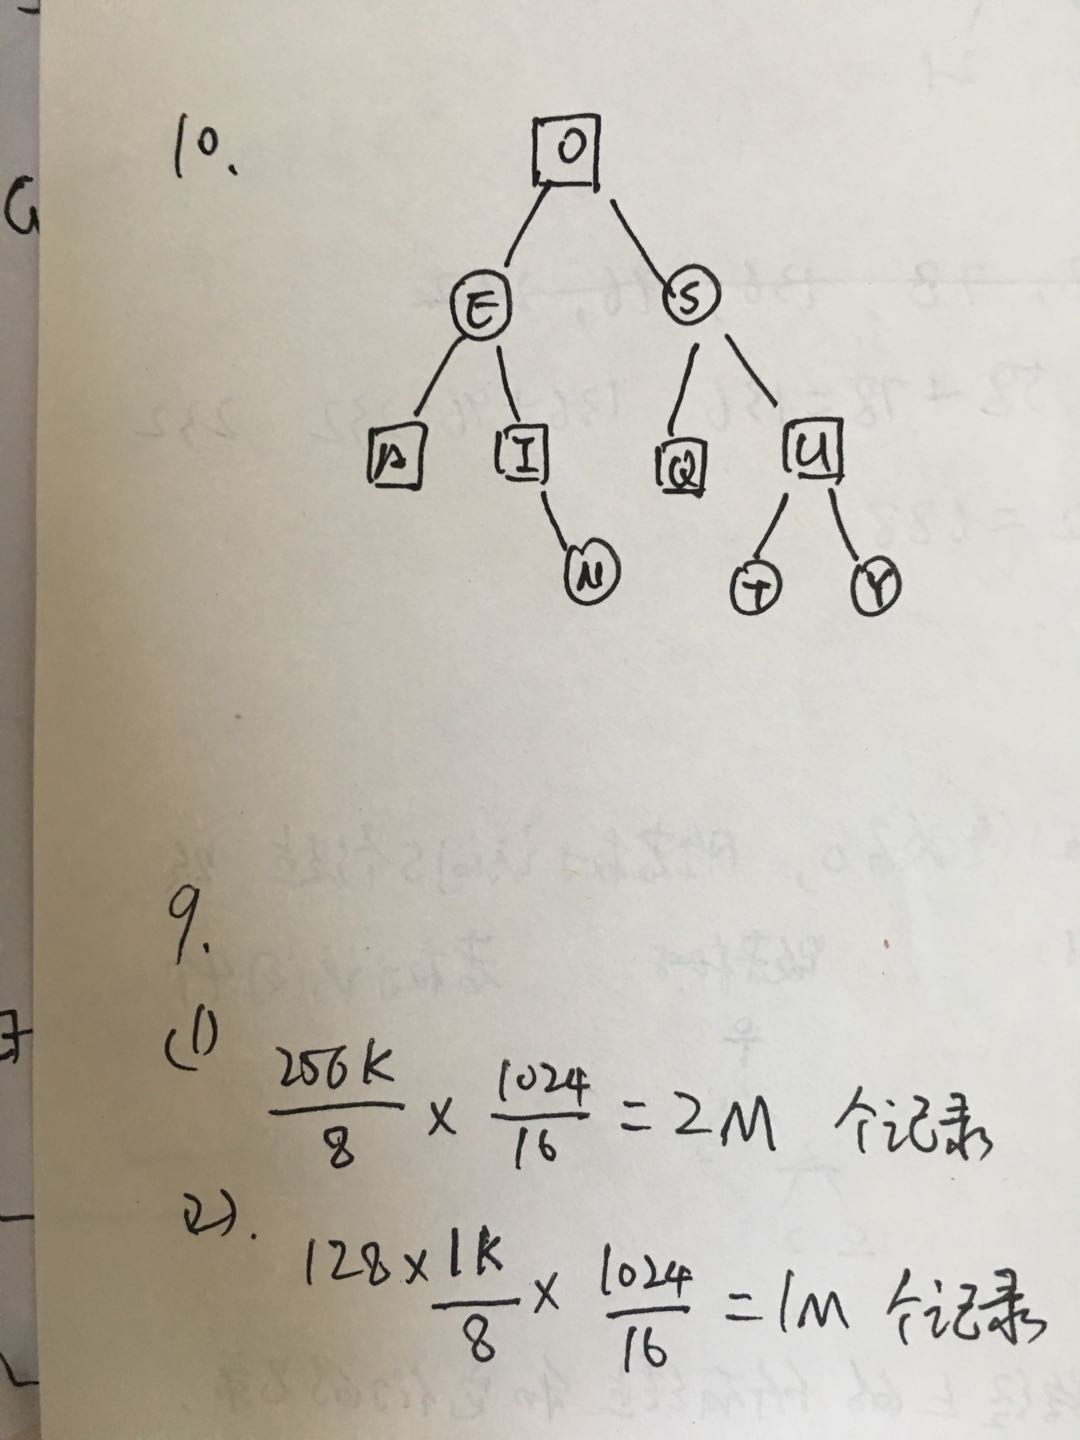 10.
O
E S
A I Q U
N T Y
9.
(1)
256K/8 × 1024/16 = 2M 个记录
(2).
128 × 1K/8 × 1024/16 = 1M 个记录